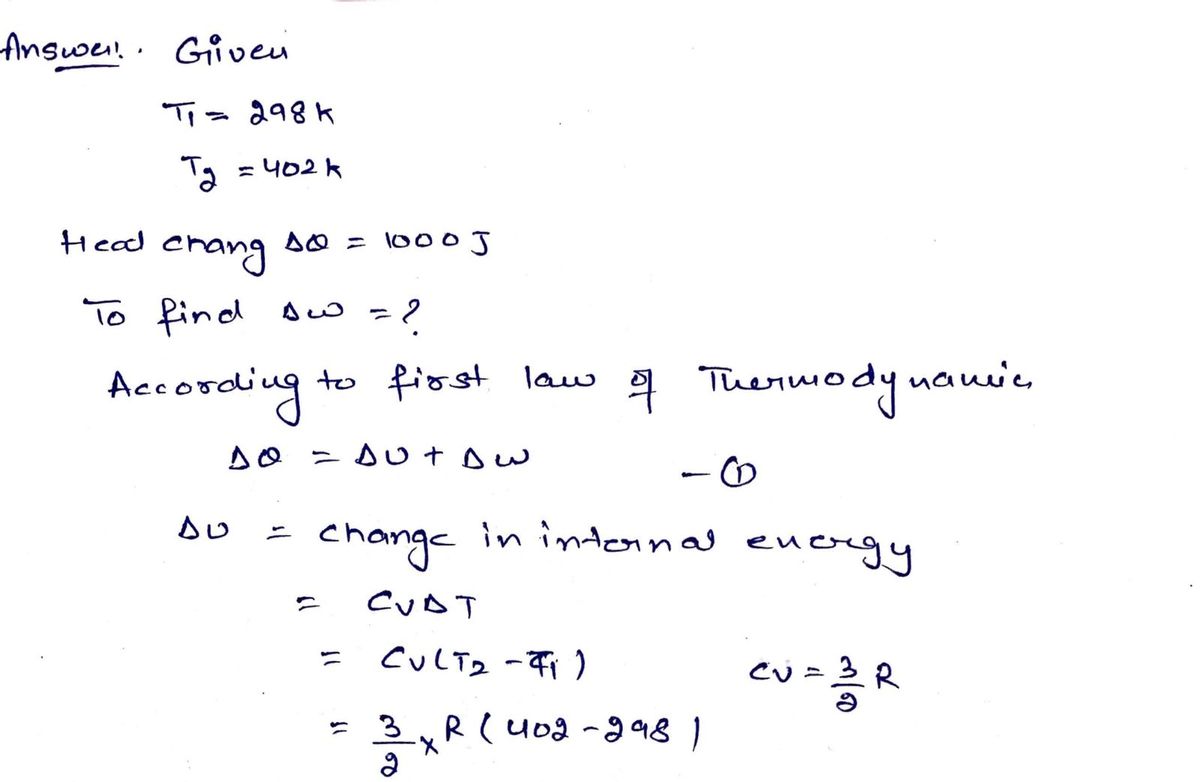 Answer:. Given
T1 = 298k
T2 = 402k
Head chang ΔQ = 1000J
To find Δw = ?
According to first law of Thermodynamic,
ΔQ = ΔU + Δw - ①
ΔU = change in internal energy
= CVΔT
= CV(T2 - T1) CV = 3/2 R
= 3/2 × R (402 - 298)